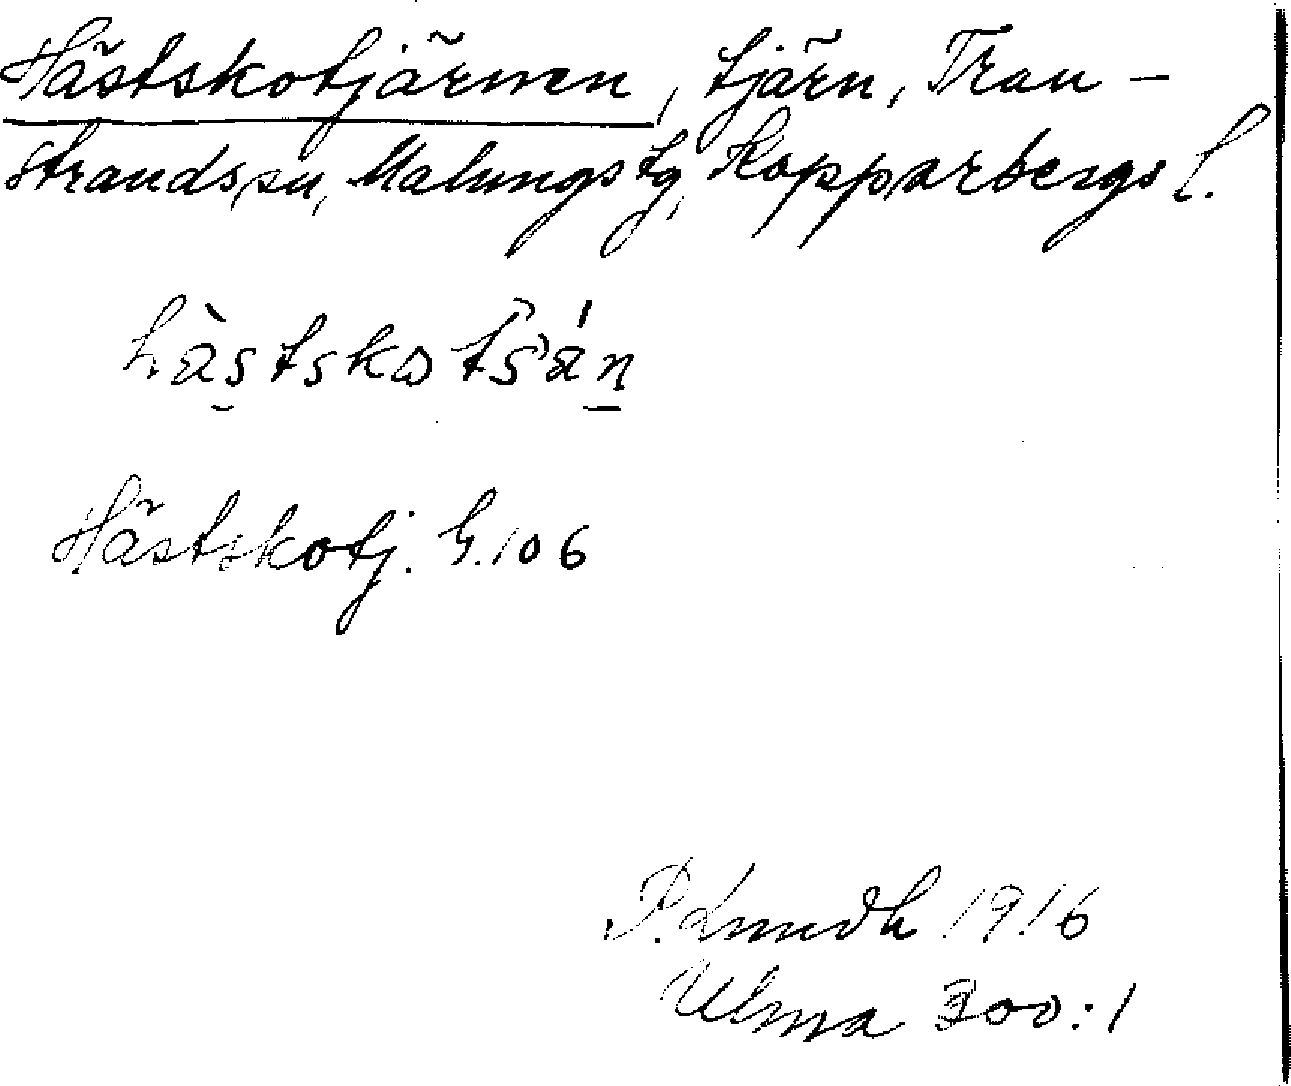 Hästskotjärnen, tjärn, Tran-
strands sn, Malungs tg, Kopparbergs l.
hàstskotšán
Hästskotj. G.106
P. Lundh 1916
Ulma 300:1